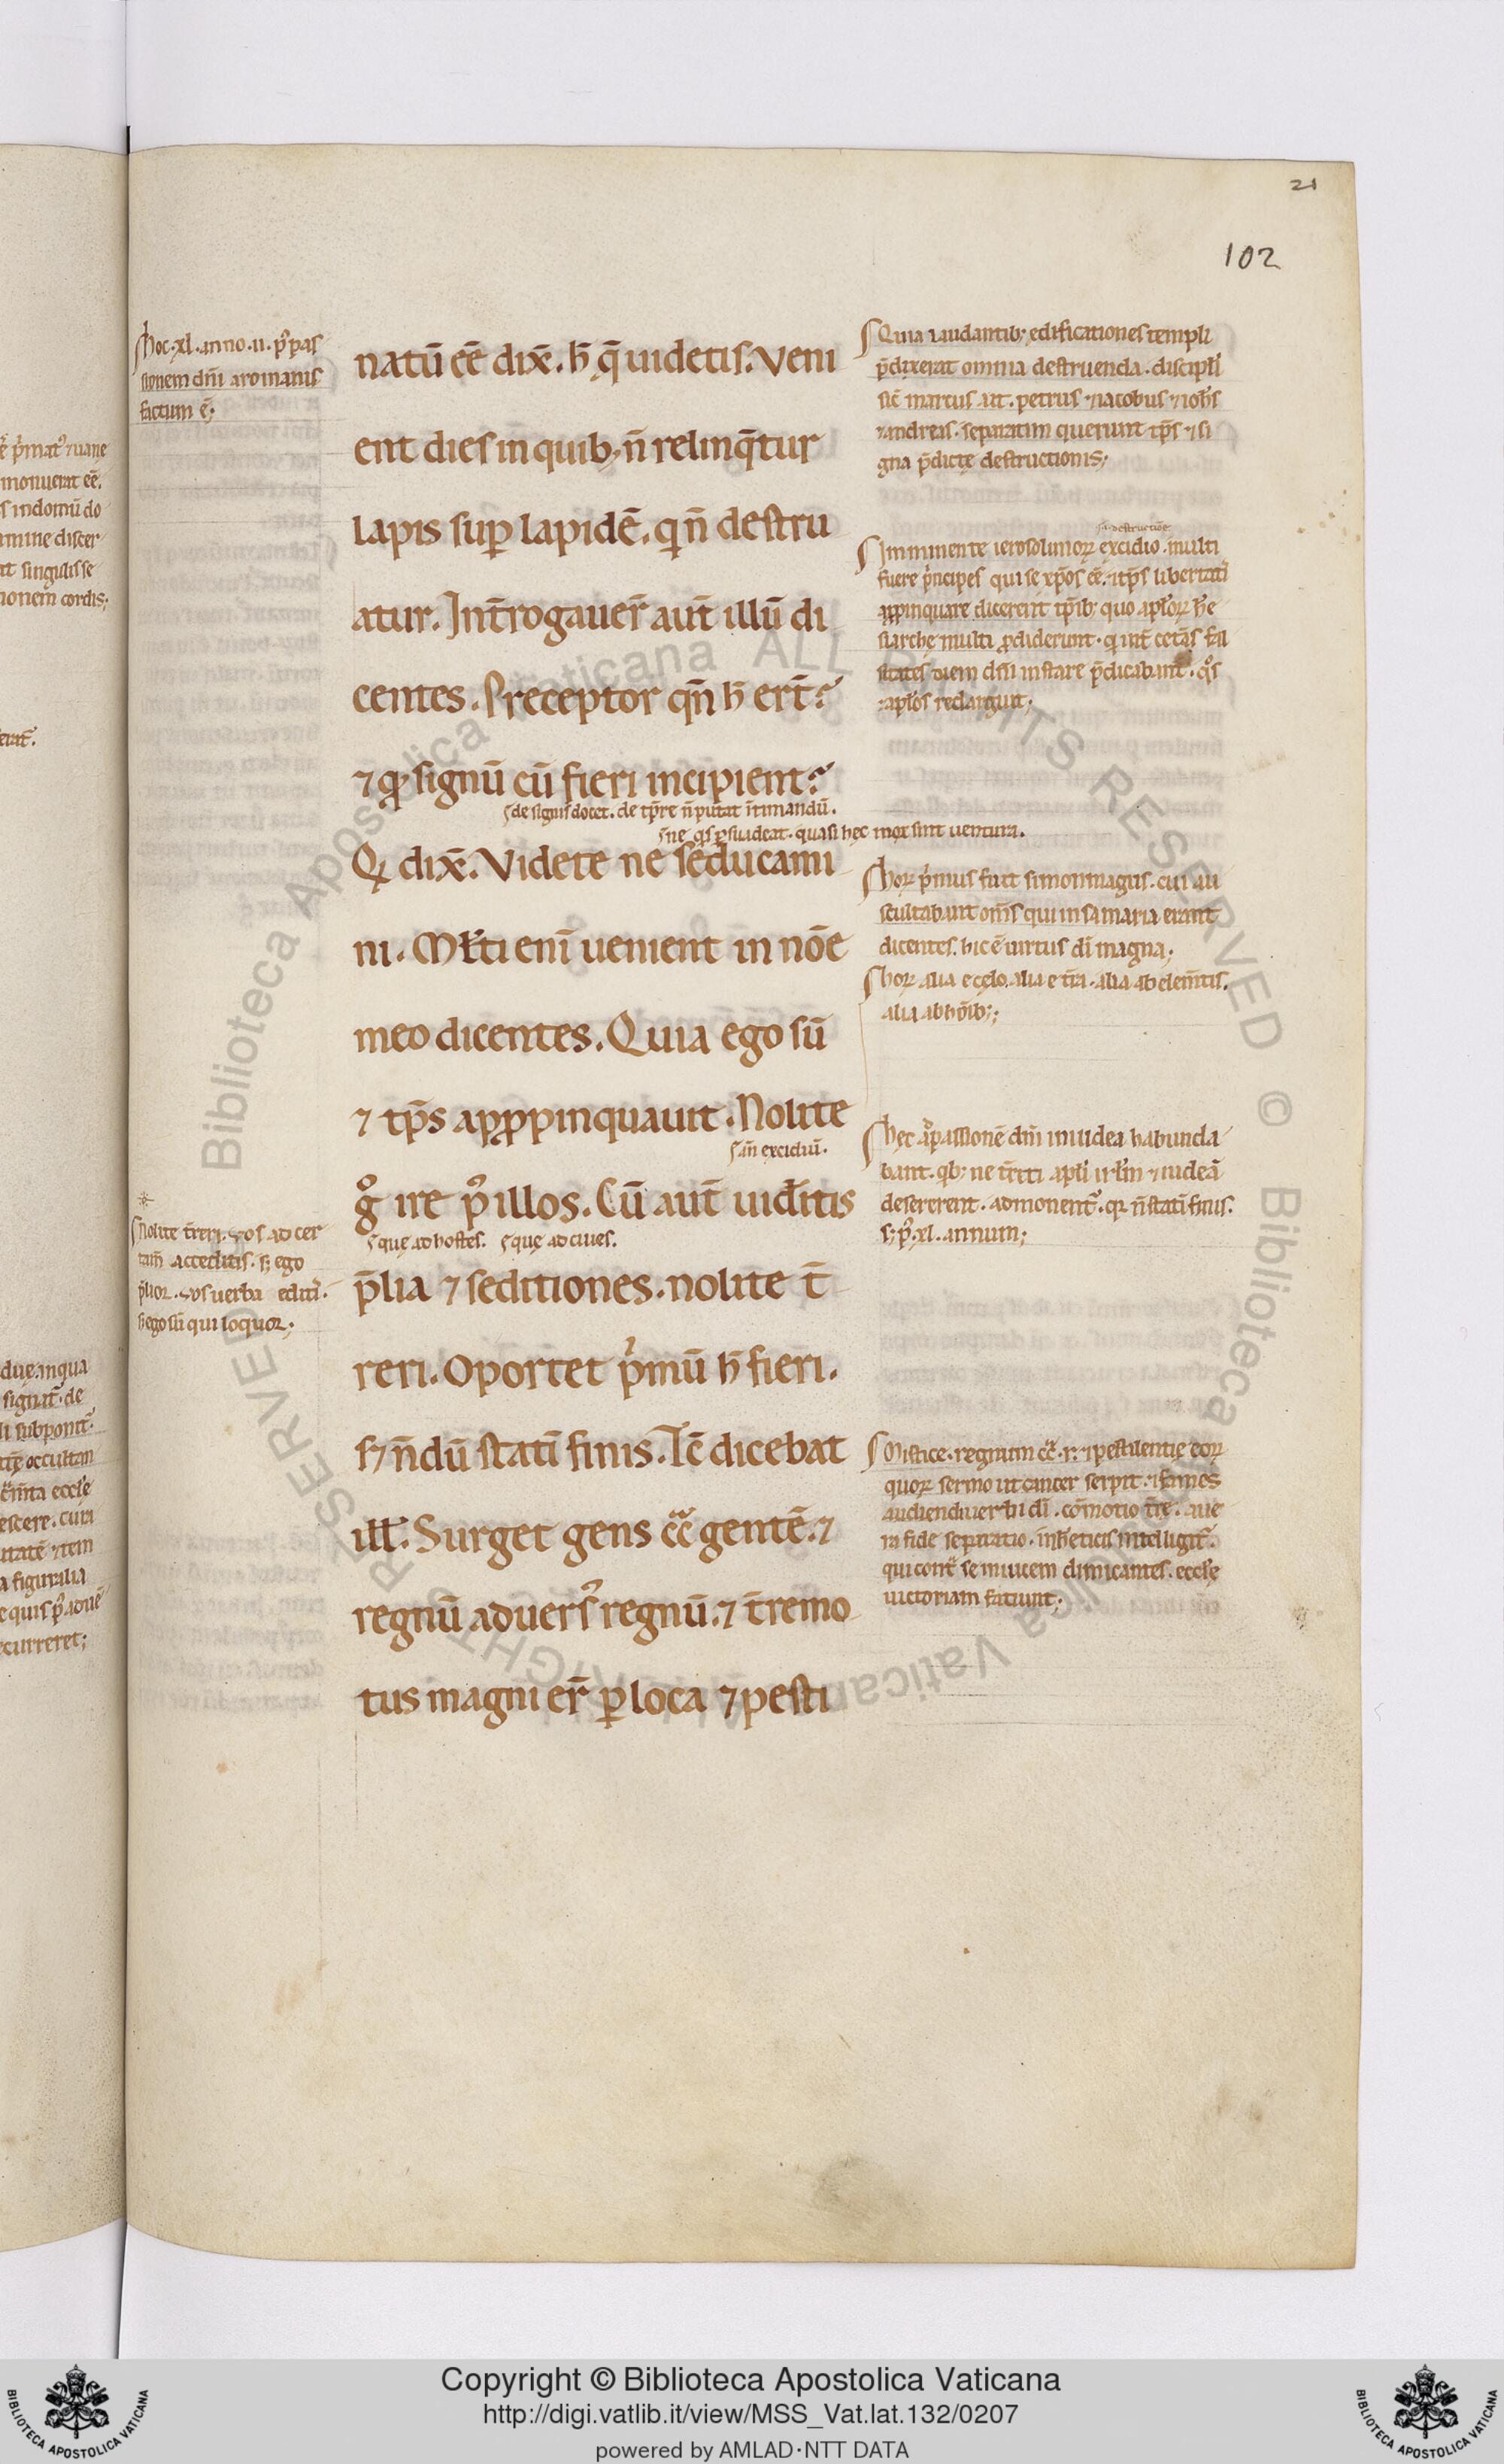 21
102
hoc .xl. anno .ii. p᷒ pas
sionem dn̄i a romanis
factum ē;
natū eē dix̄. h̄ q̄ uidetis. Veni
ent dies in quib; n̄ relinq̄tur
lapis sup̄ lapidē. qi n̄ destru
atur. Int̄rogauer̄ aut̄ illū di
centes. Preceptor qn̄ h̄ ert̄?
⁊ qd̓ signū cū fieri incipient?
de signis docet. de tp̄re n̄ putat intimandū.
ne qs̄ p̱suadeat. quasi hęc mox sint uentura.
Qi dix̄. Videte ne seducami
ni. Ml̄ti eni᷒ uenient in nōe
meo dicentes. Quia ego sū
⁊ tp̄s appropinquauit. Nolite
an̄ excidiū.
gͦ ire p᷒ illos. Cū aut̄ uid̄ritis
quę ad hostes. quę ad ciues.
p̄lia ⁊ seditiones. nolite t̄
reri. Oportet pͥmū h̄ fieri.
s; n̄dū statī finis. Tc̄ dicebat
ill̄. Surget gens cͣ gentē. ⁊
regnū aduers᷒ regnū. ⁊ t̄remo
tus magni er̄ p̱ loca ⁊ pesti
Nolite t̄reri. uos ad cer
tam̄ acceditis. s; ego
p̄lior. uos uerba editi᷒.
s; ego sū qui loquor;
Quia laudantib; edificationes templi
p̄dixerat omnia destruenda. discipl̄i
sic̄ marcus ait. petrus ⁊ iacobus ⁊ ioh̄s
⁊ andreas. separatim querunt tp̄s ⁊ si
gna p̄dictę destructionis;
destructiōe
Imminente ierosolimoꝝ excidio. multi
fuere pͥncipes qui se xp̄os eē. ⁊ tp̄s libertati
appropinquare dicerent tp̄ib; quo apl̄oꝝ he
siarchę multi prodiderunt. qi int̄ cet̄as fal
sitates diem dn̄i instare p̄dicabant. qͦs
⁊ apl̄os redarguit;
hoꝝ pͥmus fuit simon magus. cui au
scultabant om̄s qui in samaria erant
dicentes. hic ē uirtus di᷒ magna;
hoꝝ alia e cęlo. alia e t̄ra. alia ab elem̄tis.
alia ab hōib;;
hęc añ passionē dn̄i in iudea habunda
bant. qb; ne t̄riti apl̄i ir̄lm ⁊ iudeā
desererent. admonent᷒. qꝛ n̄ stati᷒ finis.
s; p᷒ .xl. annum;
Mistice. regnum cͣ .r. ⁊ pestilentię eoꝝ
quoꝝ sermo ut cancer serpit. ⁊ fames
audiendi uerbi di᷒. cōmotio t̄rę. a ue
ra fide separatio. in heͭicis intelligit᷒.
qui cont̄ se inuicem dimicantes. eccl̄ę
uictoriam faciunt;
Copyright © Biblioteca Apostolica Vaticana
http://digi.vatlib.it/view/MSS_Vat.lat.132/0207
powered by AMLAD·NTT DATA